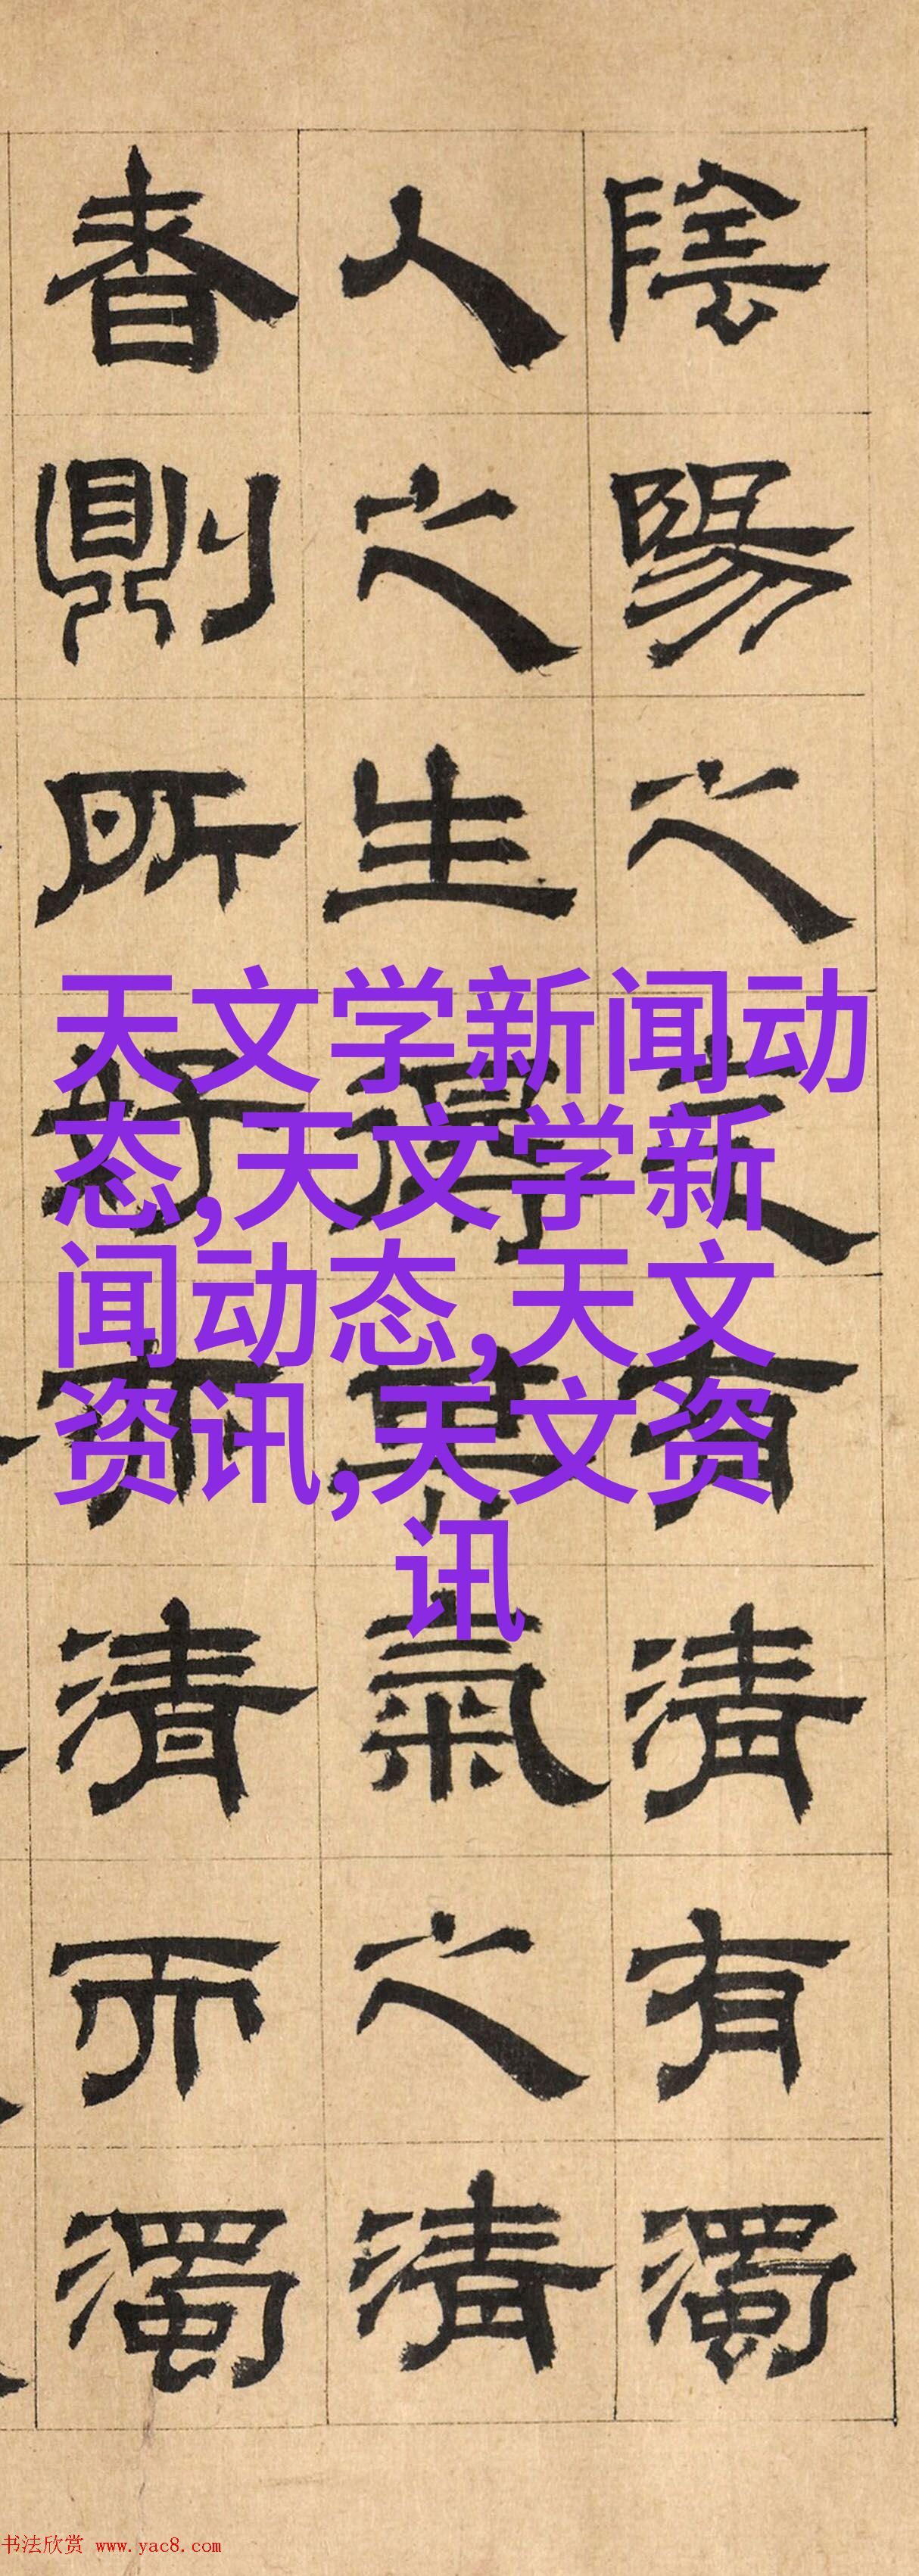 陰陽之气有清有濁
人之生得其氣之清
者則所好清而濁
天文学新闻动
态,天文学新
闻动态,天文
资讯,天文资
讯
书法欣赏 www.yac8.com